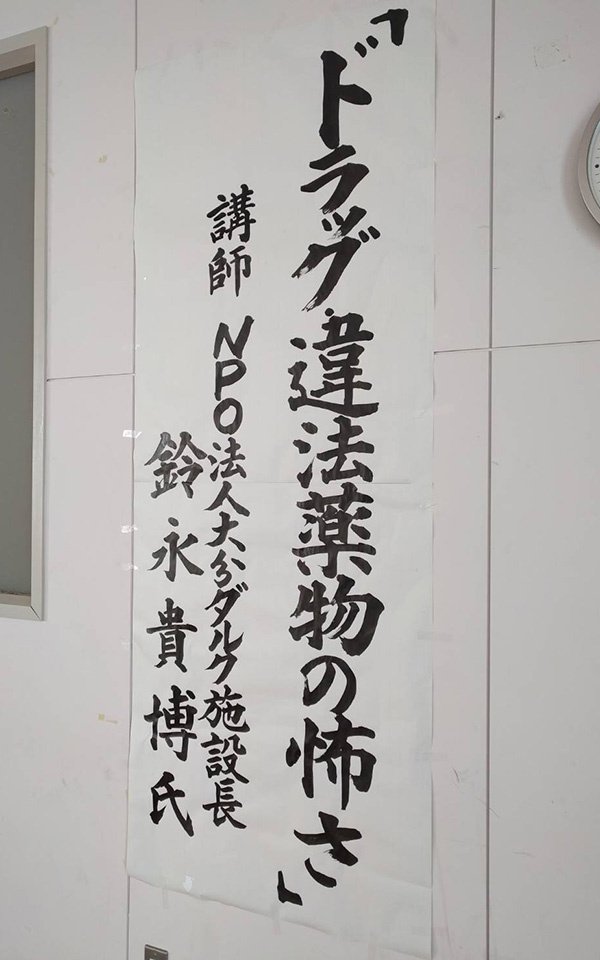 「ドラッグ違法薬物の怖さ」
講師 NPO法人大分ダルク施設長
鈴永貴博氏